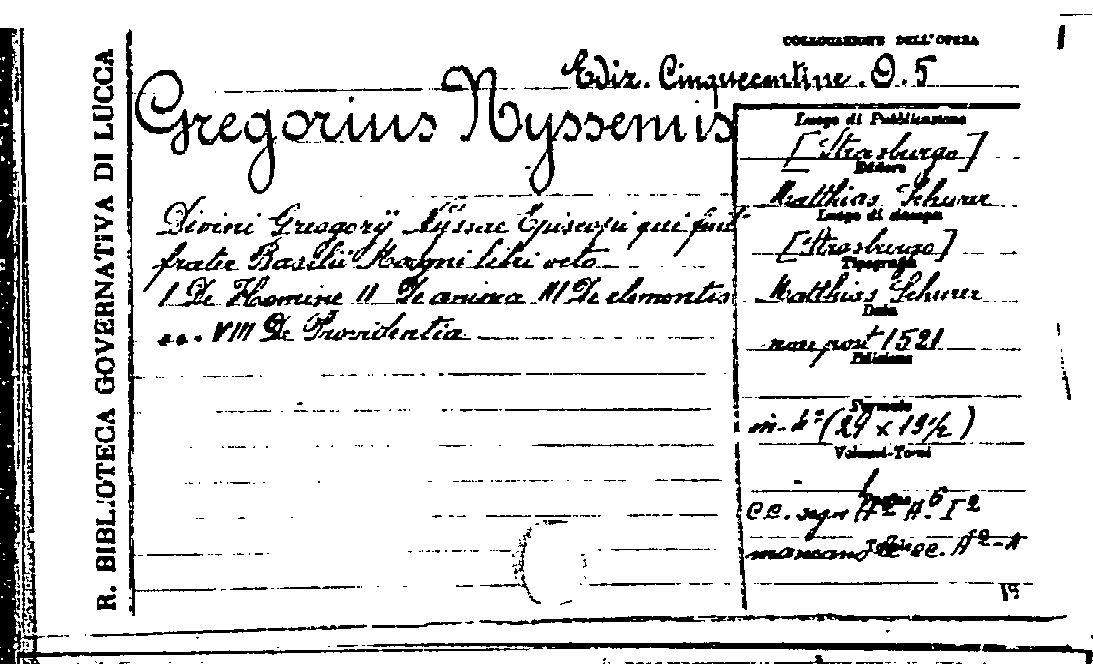 R. BIBLIOTECA GOVERNATIVA DI LUCCA
COLLOCAZIONE DELL'OPERA
Ediz. Cinquecentine. O. 5
Gregorius Nyssenus
Divini Gregorÿ Nyssae Episcopi qui fuit
frater Basilii Magni libri octo
I De Homine II De anima III De elementis
... VIII De Providentia
Luogo di Pubblicazione
[Strasburgo]
Editore
Matthias Schurer
Luogo di stampa
[Strasburgo]
Tipografo
Matthias Schurer
Data
non post 1521
Edizione
Formato
in-4° (29 x 19½)
Volumi-Tomi
1
c.c. segn A2 I2
mancano cc. A2-A
19